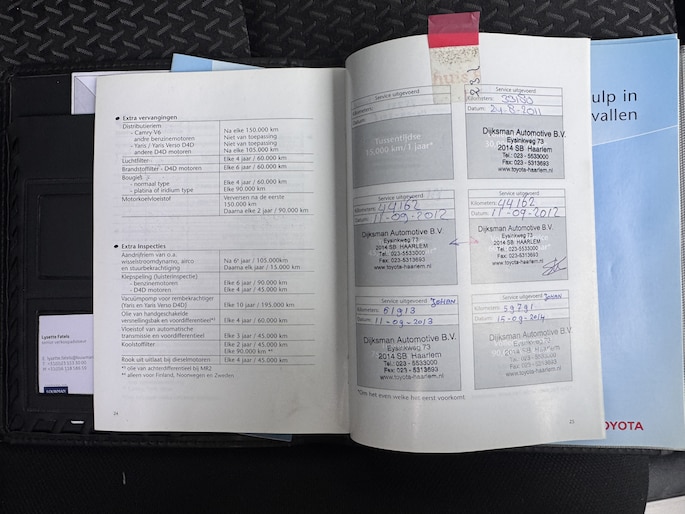 Extra vervangingen
Distributieriem
- Camry V6
Na elke 150.000 km
andere benzinemotoren
Niet van toepassing
- Yaris / Yaris Verso D4D
Niet van toepassing
andere D4D motoren
Na elke 105.000 km
Luchtfilter
Elke 4 jaar / 60.000 km
Brandstoffilter - D4D motoren
Elke 6 jaar / 60.000 km
Bougies
- normaal type
Elke 4 jaar / 60.000 km
- platina of iridium type
Elke 90.000 km
Motorkoelvloeistof
Verversen na de eerste
150.000 km
Daarna elke 2 jaar / 90.000 km
Extra inspecties
Aandrijfriem van o.a.
wisselstroomdynamo, airco
Na 6² jaar / 105.000km
en stuurbekrachtiging
Daarna elk jaar / 15.000 km
Klepspeling (luisterinspectie)
- benzinemotoren
Elke 6 jaar / 90.000 km
- D4D motoren
Elke 3 jaar / 45.000 km
Vacuümpomp voor rembekrachtiger
(Yaris en Yaris Verso D4D)
Elke 10 jaar / 195.000 km
Olie van handgeschakelde
versnellingsbak en voordifferentieel*¹
Elke 4 jaar / 60.000 km
Vloeistof van automatische
transmissie en voordifferentieel
Elke 3 jaar / 45.000 km
Koolstoffilter
Elke 2 jaar / 45.000 km
Elke 90.000 km *²
Rook uitlaat bij dieselmotoren
Elke 4 jaar / 45.000 km
*¹ olie van achterdifferentieel bij MR2
*² alleen voor Finland, Noorwegen en Zweden
24
Lysette Fatels
LOUWMAN
huis
Service uitgevoerd
Kilometers:
Datum:
Tussentijdse
15.000 km/1 jaar*
Service uitgevoerd
Kilometers:
Datum: 24-8-2011
Dijksman Automotive B.V.
Eysinkweg 73
2014 SB Haarlem
Tel.: 023 - 5533000
www.toyota-haarlem.nl
Service uitgevoerd
Kilometers: 44162
Datum: 11-09-2012
Dijksman Automotive B.V.
Eysinkweg 73
2014 SB HAARLEM
Tel.: 023-5533000
Fax: 023-5313693
www.toyota-haarlem.nl
Service uitgevoerd
Kilometers: 44162
Datum: 11-09-2012
Dijksman Automotive B.V.
Eysinkweg 73
2014 SB HAARLEM
Tel.: 023-5533000
Fax: 023-5313693
www.toyota-haarlem.nl
Service uitgevoerd JOHAN
Kilometers: 51913
Datum: 11-09-2013
Dijksman Automotive B.V.
Eysinkweg 73
2014 SB Haarlem
Tel.: 023 - 5533000
Fax: 023 - 5313693
www.toyota-haarlem.nl
Service uitgevoerd JOHAN
Kilometers: 59791
Datum: 15-09-2014
Dijksman Automotive B.V.
Eysinkweg 73
2014 SB Haarlem
Tel.: 023 - 5533000
Fax: 023 - 5313693
www.toyota-haarlem.nl
*Om het even welke het eerst voorkomt
25
ulp in
vallen
OYOTA